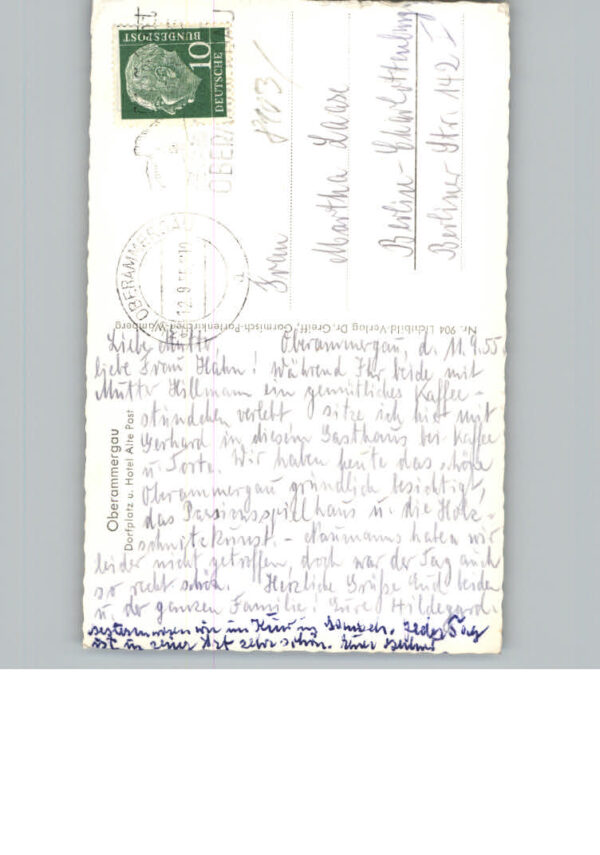 Liebe Mutti Oberammergau, d. 11.9.55.
liebe Frau Hahn! Während Ihr beide mit
Mutter Hillmann ein gemütliches Kaffee-
stündchen verlebt sitze ich hier mit
Gerhard in diesem Gasthaus bei Kaffee
u. Torte. Wir haben heute das schöne
Oberammergau gründlich besichtigt,
das Passionsspielhaus u. die Holz-
schnitzkunst. - Naumanns haben wir
leider nicht getroffen, doch war der Tag auch
so recht schön. Herzliche Grüße Euch beiden
u. der ganzen Familie! Eure Hildegard.
wir im Jeder Tag
ist in seiner Art sehr schön. Euer
Oberammergau
Dorfplatz u. Hotel Alte Post
Nr. 904 Lichtbild-Verlag Dr. Greiff, Garmisch-Partenkirchen-Wamberg
Frau
Martha Laase
Berlin-Charlottenburg
Berliner Str. 142 I
OBERAMMERGAU
12.9.55
a
OBERAMMERGAU
10
DEUTSCHE
BUNDESPOST